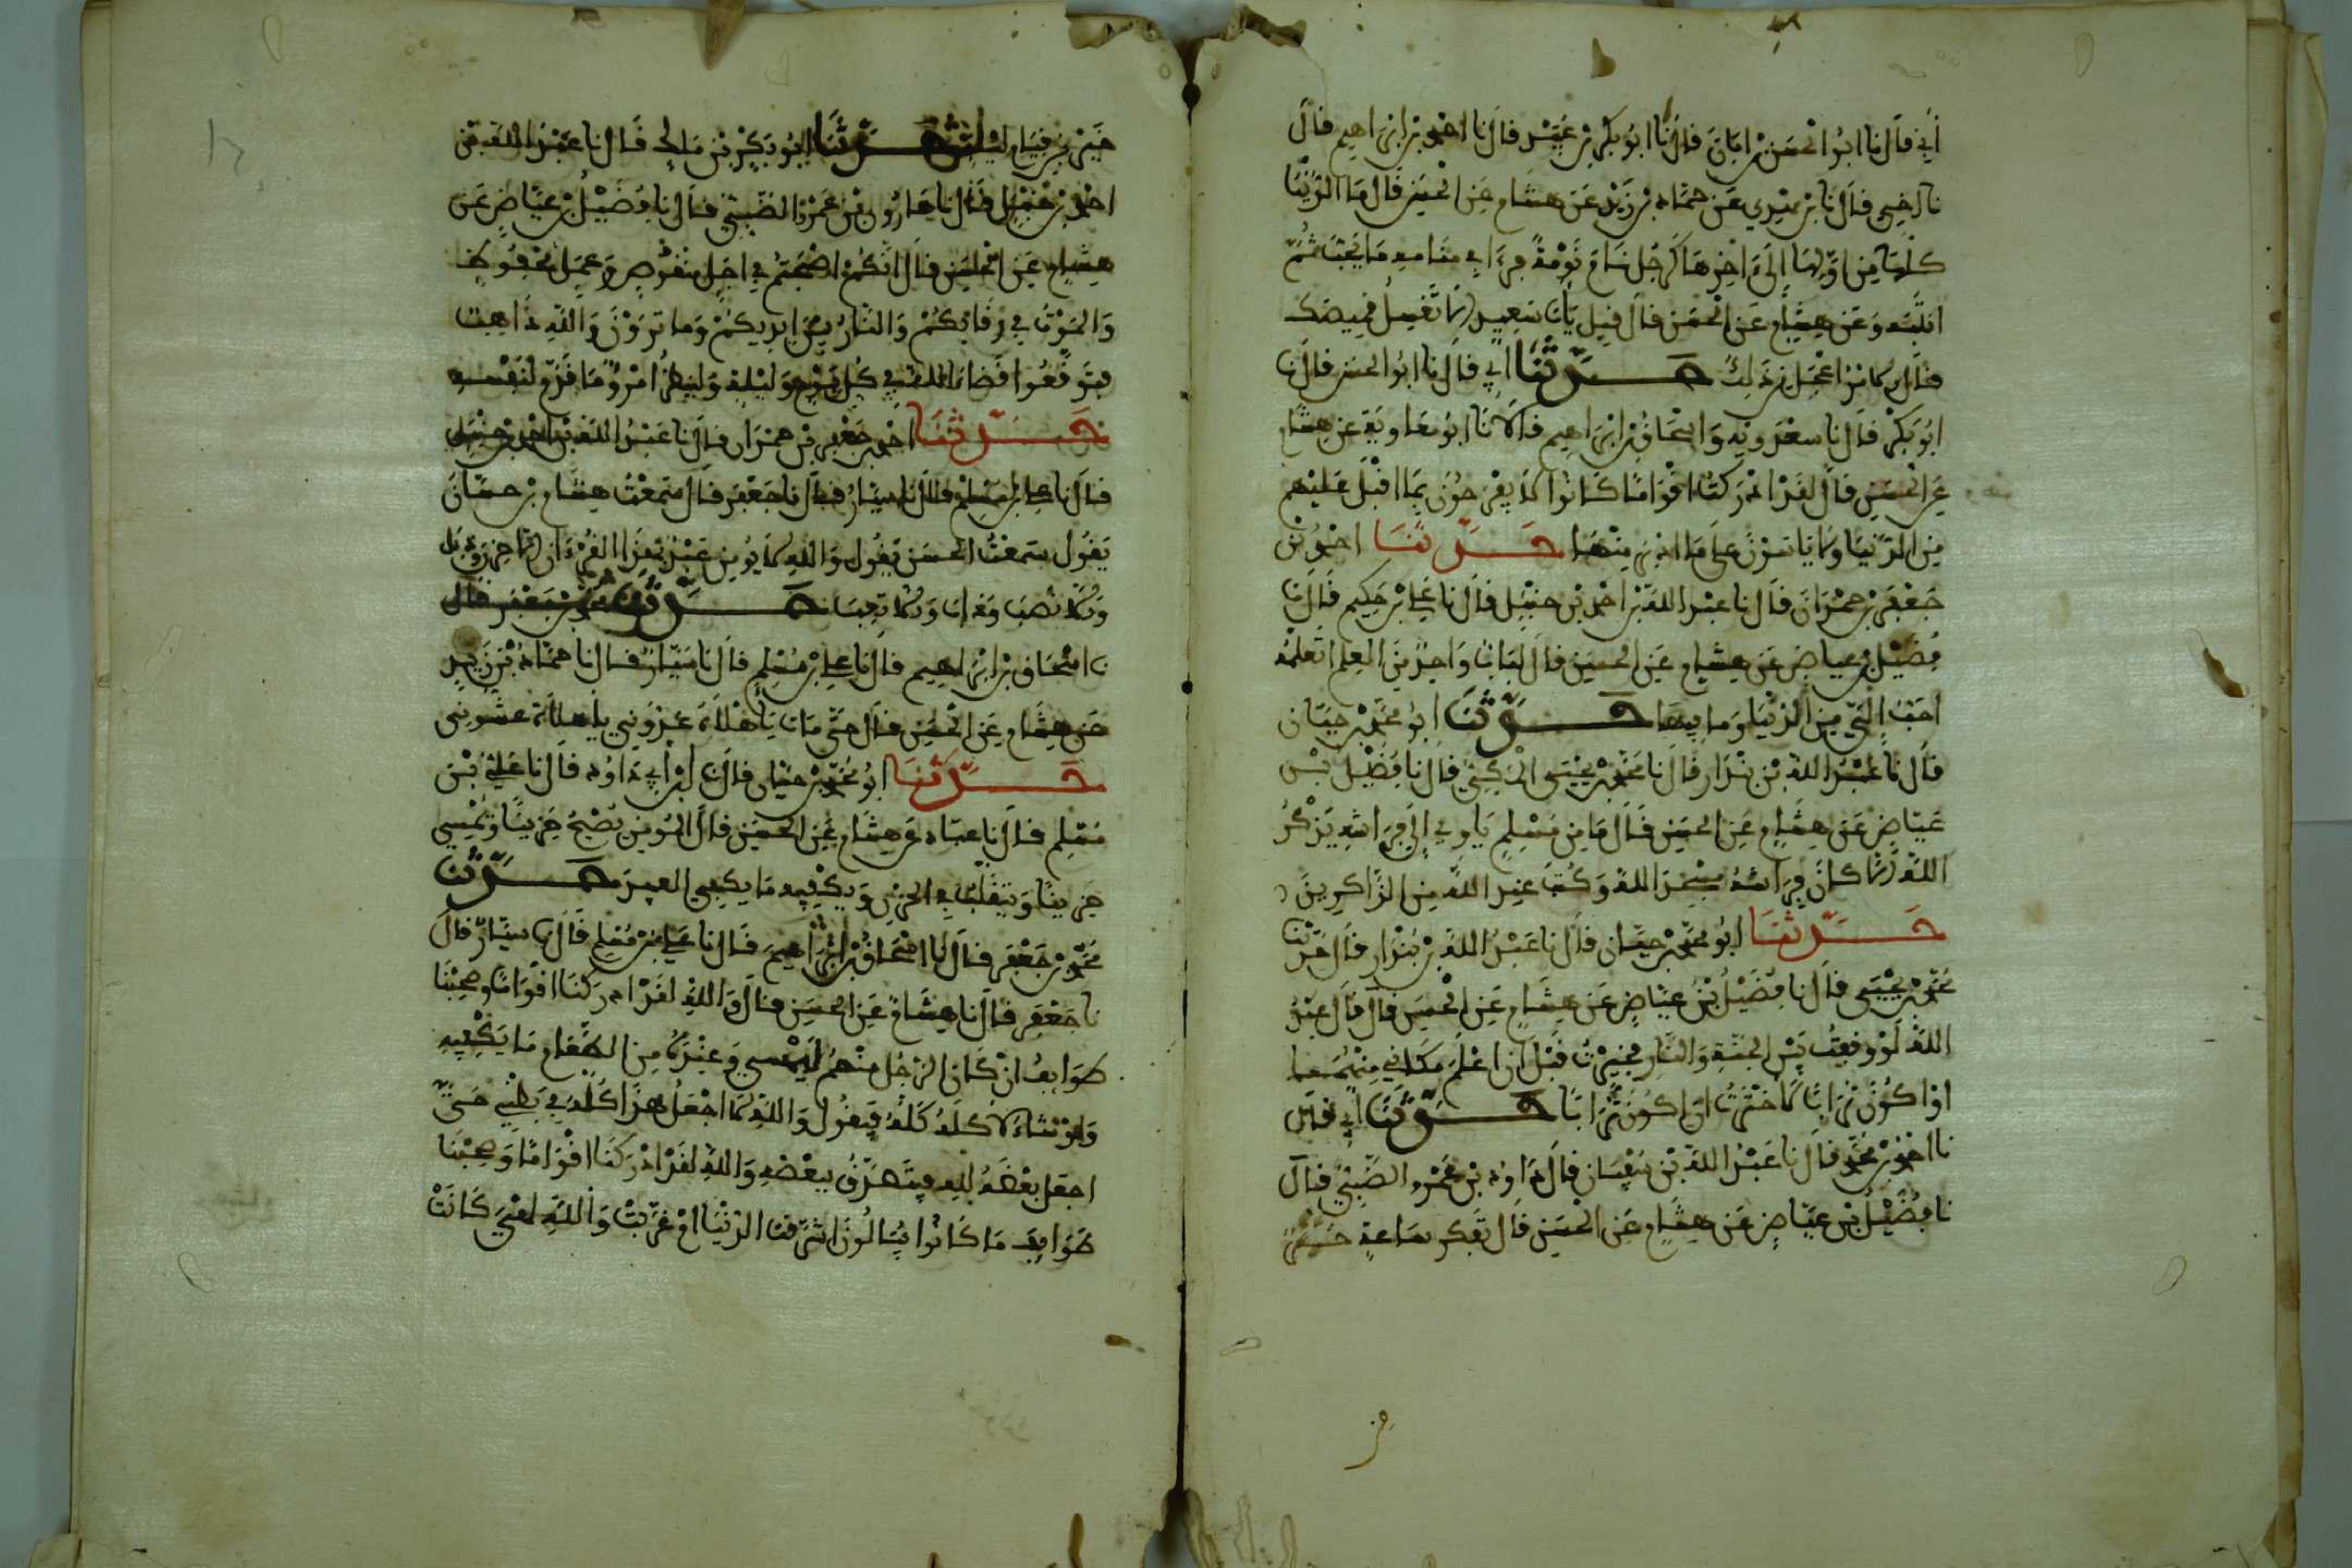 أبي قال نا ابو الحسن بن ابان قال نا ابو بكر بن عبيد قال نا احمد بن ابراهيم قال
نا رضي قال نا بن مهدي عن حماد بن زيد عن هشام عن الحسن قال ما الدنيا
كلها من اولها الى اخرها كرجل نام نومة فرءا في منامه ما يحب ثم
انتبه وعن هشام عن الحسن قال قيل يأبا سعيد الا تغسل قميصك
قال الامر اعجل من ذلك حدثنا أبي قال نا ابو الحسن قال نا
ابو بكر قال نا سعدويه واسحاق بن ابراهيم قالا نا ابو معاوية عن هشام
عن الحسن قال لقد ادركت اقواما كانوا لا يفرحون بما اقبل عليهم
من الدنيا ولا ياسون على ما ادبر منها حدثنا احمد بن
جعفر بن حمدان قال نا عبد الله بن احمد بن حنبل قال نا علي بن حكيم قال نا
فضيل بن عياض عن هشام عن الحسن قال لباب واحد من العلم اتعلمه
احب إلي من الدنيا وما فيها حدثنا ابو محمد بن حيان
قال نا عبد الله بن بندار قال نا محمد بن يحيى قال نا فضيل بن
عياض عن هشام عن الحسن قال ما من مسلم ياوي إلى فراشه يذكر
الله الا كان فراشه مسجدا لله وكتب عند الله من الذاكرين
حدثنا ابو محمد بن حيان قال نا عبد الله بن بندار قال حدثنا
محمد بن يحيى قال نا فضيل بن عياض عن هشام عن الحسن قال قال عبد
الله لو وقفت بين الجنة والنار فخيرت قبل ان اعلم مكاني منهما
او اكون ترابا لاخترت ان اكون ترابا حدثنا أبي قال
نا احمد بن محمد قال نا عبد الله بن سفيان قال داود بن عمرو الضبي قال
نا فضيل بن عياض عن هشام عن الحسن قال تفكر ساعة
خير من قيام ليلة حدثنا ابو بكر بن مالك قال نا عبد الله بن
احمد بن حنبل قال نا هارون بن عمرو الضبي قال نا فضيل بن عياض عن
هشام عن الحسن قال انكم اصبحتم في اجل منقوص وعمل محفوظ
والموت في رقابكم والنار بين ايديكم وما ترون والله ذاهب
فتوقعوا قضاء الله في كل يوم وليلة ولينظر امرؤ ما قدم لنفسه
حدثنا احمد بن جعفر بن حمدان قال نا عبد الله بن احمد بن حنبل
قال نا علي بن مسلم قال نا سيار قال نا جعفر قال سمعت هشام بن حسان
يقول سمعت الحسن يقول والله لا يومن عبد بهذا القرءان الا حزن وذبل
والا نصب وذاب والا تعب حدثنا محمد بن جعفر قال
نا اسحاق بن ابراهيم قال نا علي بن مسلم قال نا سيار قال نا حماد بن زيد
عن هشام عن الحسن قال حتى متى يأهلاه غدوني يأهلاه عشوني
حدثنا ابو محمد بن حيان قال نا بن أبي داود قال نا علي بن
مسلم قال نا عباد عن هشام عن الحسن قال المومن يصبح حزينا ويمسي
حزينا ويتقلب في الحزن ويكفيه ما يكفي العنيزة حدثنا
محمد بن جعفر قال نا اسحاق بن ابراهيم قال نا علي بن مسلم قال نا سيار قال
نا جعفر قال نا هشام عن الحسن قال والله لقد ادركنا اقواما وصحبنا
طوايف ان كان الرجل منهم ليمسي وعنده من الطعام ما يكفيه
ولو شاء لاكله كله فيقول والله لا اجعل هذا كله في بطني حتى
اجعل بعضه لله فيتصدق ببعضه والله لقد ادركنا اقواما وصحبنا
طوايف ما كانوا يبالون اشرقت الدنيا ام غربت والله لهي كانت